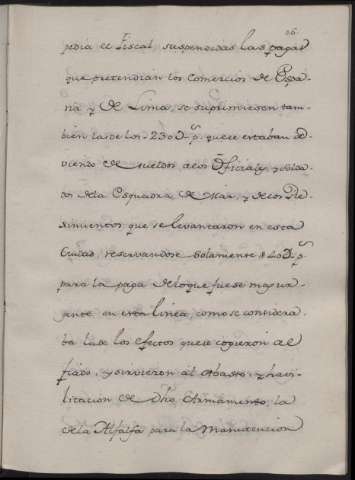 26
pedia el Fiscal, suspendidas las pagas
que pretendian los Comercios de Espa-
ña, y de Lima, se suprimiesen tam-
bien las de los 230Ups. que se estaban de-
viendo de sueldos a los Oficiales, y solda-
dos de la Esquadra de Mar, y de los Re-
ximientos que se levantaron en esta
Ciudad, reservandose solamente 840Ups.
para la paga de lo que fuese mas ur-
gante en esta linea, como se considera
ba la de los efectos que se cogieron al
fiado, y sirvieron al Abasto, y havi-
litacion de dho. Armamento, la
de la Alfalfa para la Manutencion